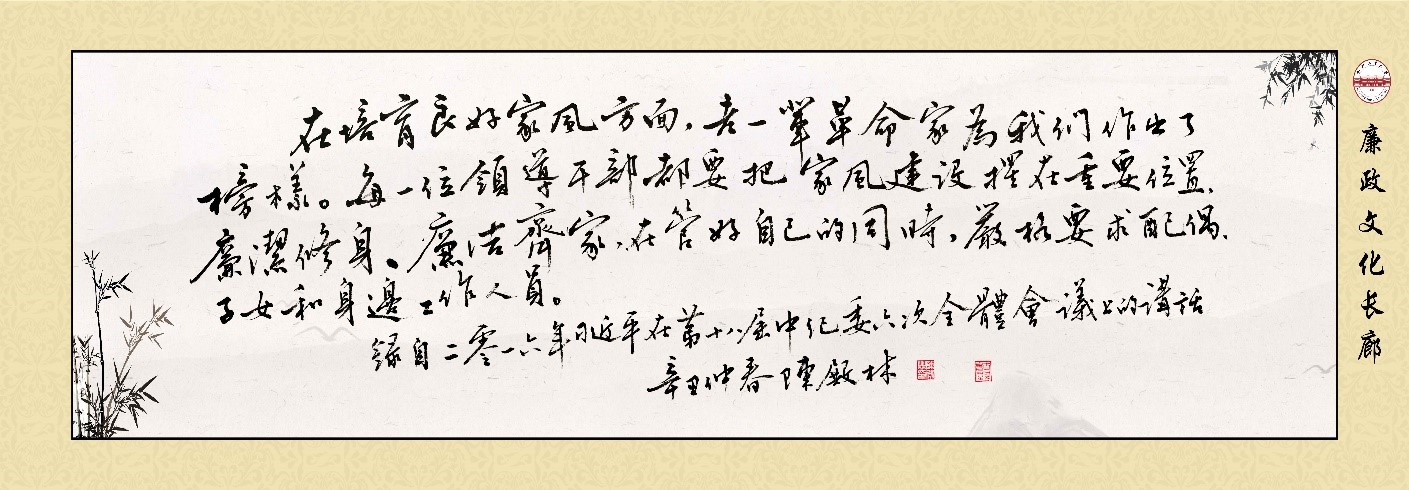 在培育良好家風方面，老一輩革命家為我們作出了
榜樣。每一位領導干部都要把家風建设摆在重要位置、
廉潔修身、廉洁齊家，在管好自己的同時，嚴格要求配偶、
子女和身邊工作人員。
録自二零一六年习近平在第十八届中纪委六次全體會議上的講話
辛丑仲春陳殿林
廉政文化长廊